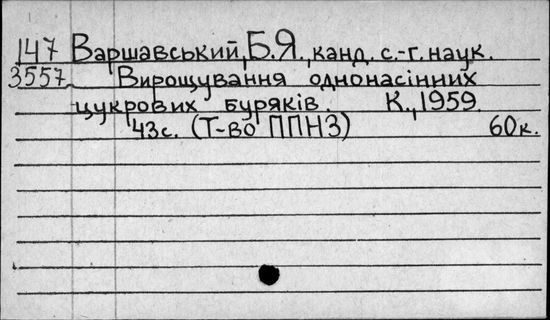 147 Варшавський, Б.Я., канд. с.-г. наук.
3557 Вирощування однонасінних
цукрових буряків. К., 1959.
43с. (Т-во ППНЗ) 60к.